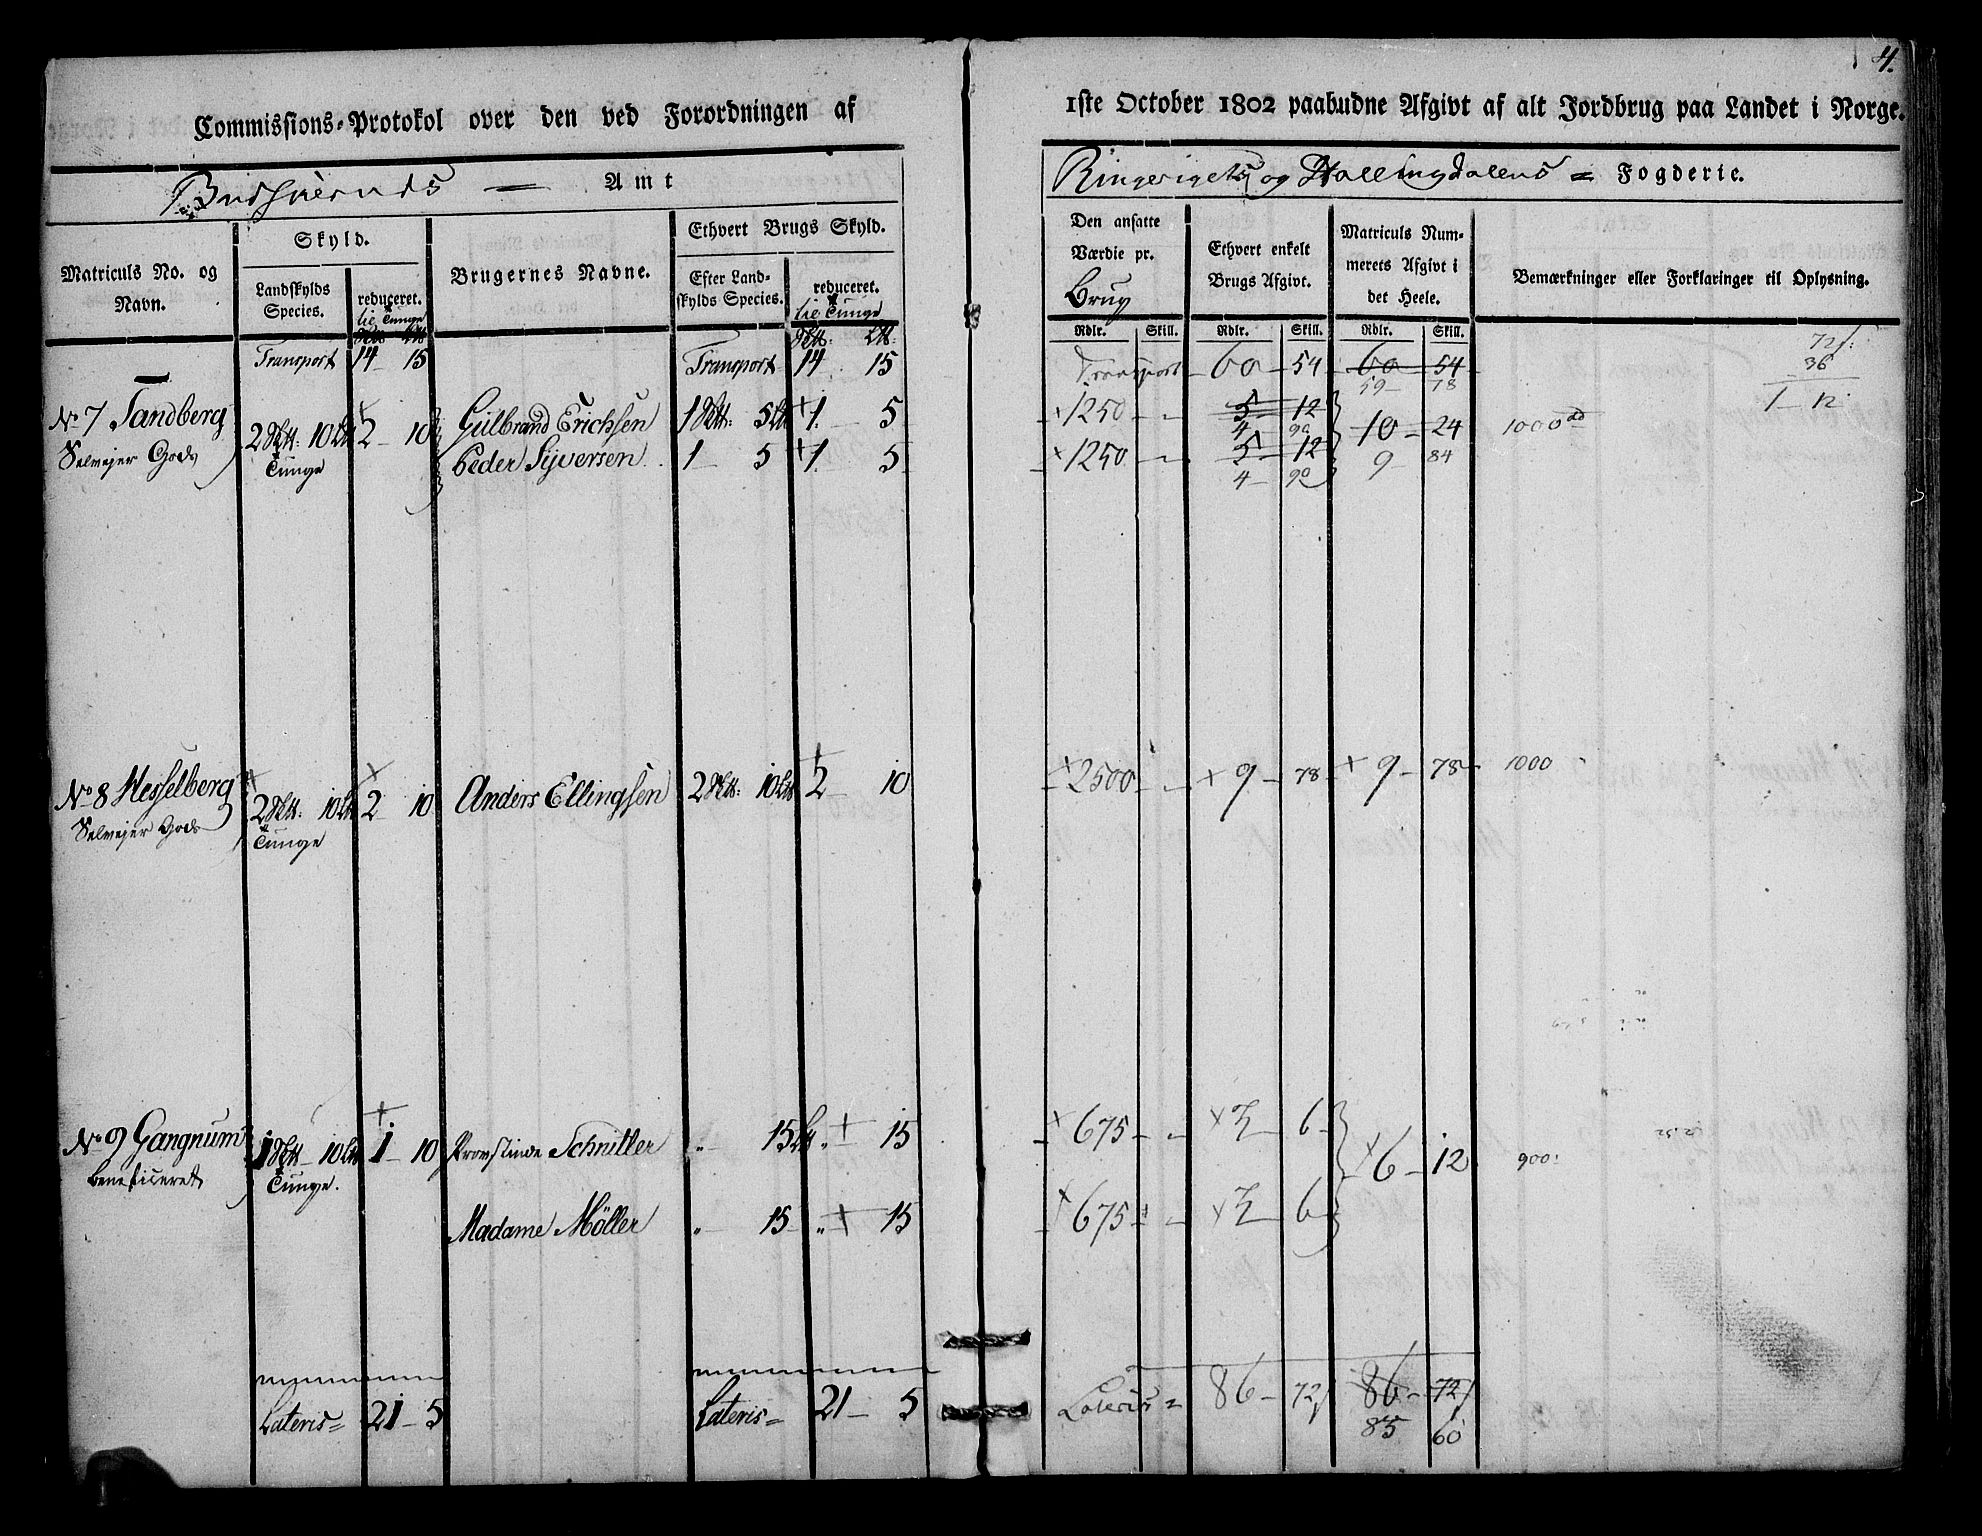 4.
Commissions-Protokol over den ved Forordningen af 1ste October 1802 paabudne Afgivt af alt Jordbrug paa Landet i Norge.
Buskeruds = Amt
Ringerigets og Hallingdalens = Fogderie.
Matriculs No. og Navn.
Skyld.
Landskylds Species.
reduceret.
Brugernes Navne.
Ethvert Brugs Skyld.
Efter Landskylds Species.
reduceret.
Den ansatte Værdie pr. Brug
Ethvert enkelt Brugs Afgivt.
Matriculs Nummerets Afgivt i det Heele.
Bemærkninger eller Forklaringer til Oplysning.
Rdlr. Skill. Rdlr. Skill. Rdlr. Skill.
Transport 14 15 Transport 14 15 Transport 60 54 60 54
59 78
72
36
1 12
No 7 Sandberg 2 10 2 10 Gulbrand Erichsen 1 5 1 5 1250 5 12 10 24 1000
4 90
Selvejer Gods Tunge Peder Syversen 1 5 1 5 1250 5 12 9 84
4 90
No 8 Hesselberg 2 10 2 10 Anders Ellingsen 2 10 2 10 2500 9 78 9 78 1000
Selvejer Gods Tunge
No 9 Gangnum 1 10 1 10 Provstinde Schnitler 15 15 675 3 6 6 12 900
Beneficeret Tunge.
Madame Möller 15 15 675 3 6
Lateris = 21 5 Lateris = 21 5 Lateris = 86 72 86 72
85 60